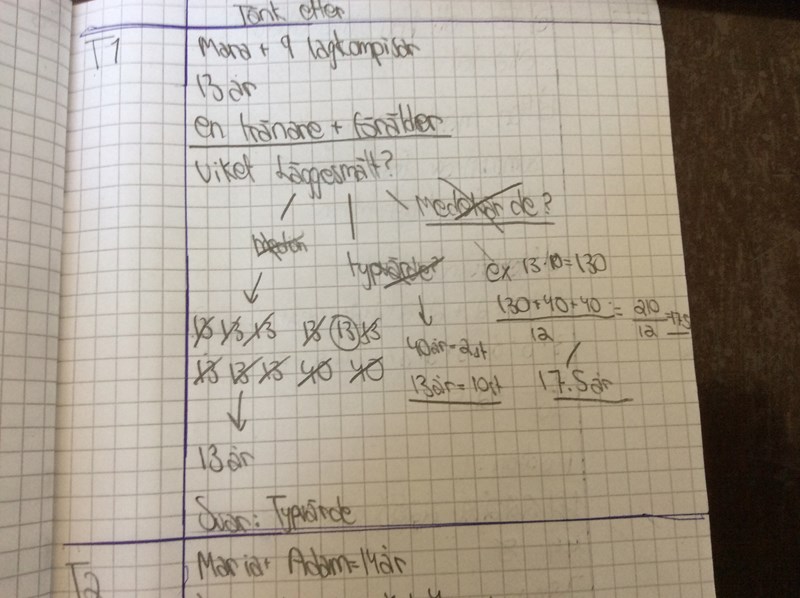 Tänk efter
T1
Mara + 9 lagkompisar
13 år
en tränare + förälder
Vilket läggesmått?
Medelvärde?
typvärde?
ex 13·10=130
13 13 13 13 13 13
130+40+40 = 210 = 17,5
12 12
40år=2st
13 13 13 40 40
13år=10st
17.5år
13år
Svar: Typvärde
T2
Maria+ Adam=14år